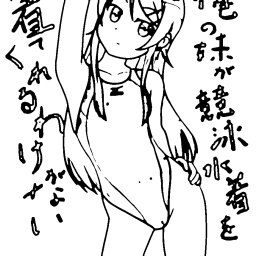 俺の妹が
意泳水着を
着てくれるわけ
がない